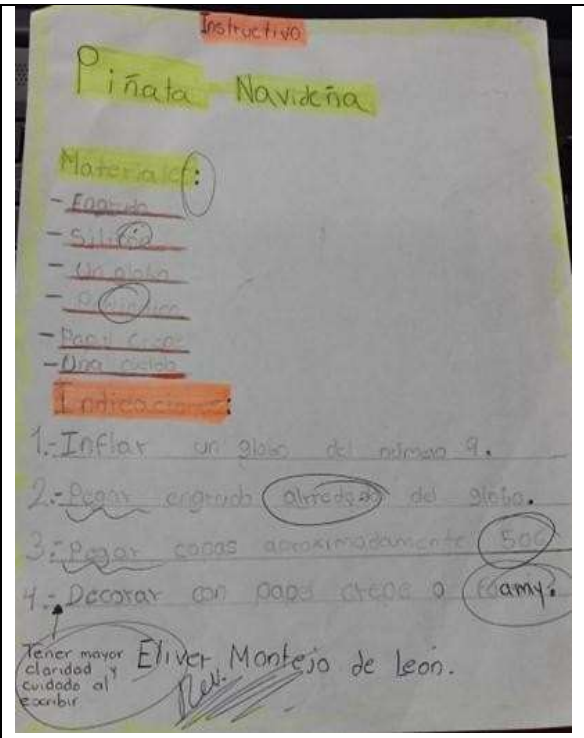 Instructivo
Piñata Navideña
Materiales:
- Engrudo
- Silicón
- Un globo
- Periódico
- Papel crepe
- Una cuerda
Indicaciones:
1.- Inflar un globo del número 9.
2.- Pegar engrudo alrededor del globo.
3.- Pegar capas aproximadamente
4.- Decorar con papel crepe o foamy.
Tener mayor
claridad y
cuidado al
escribir
Eliver Montejo de León.
Rev.